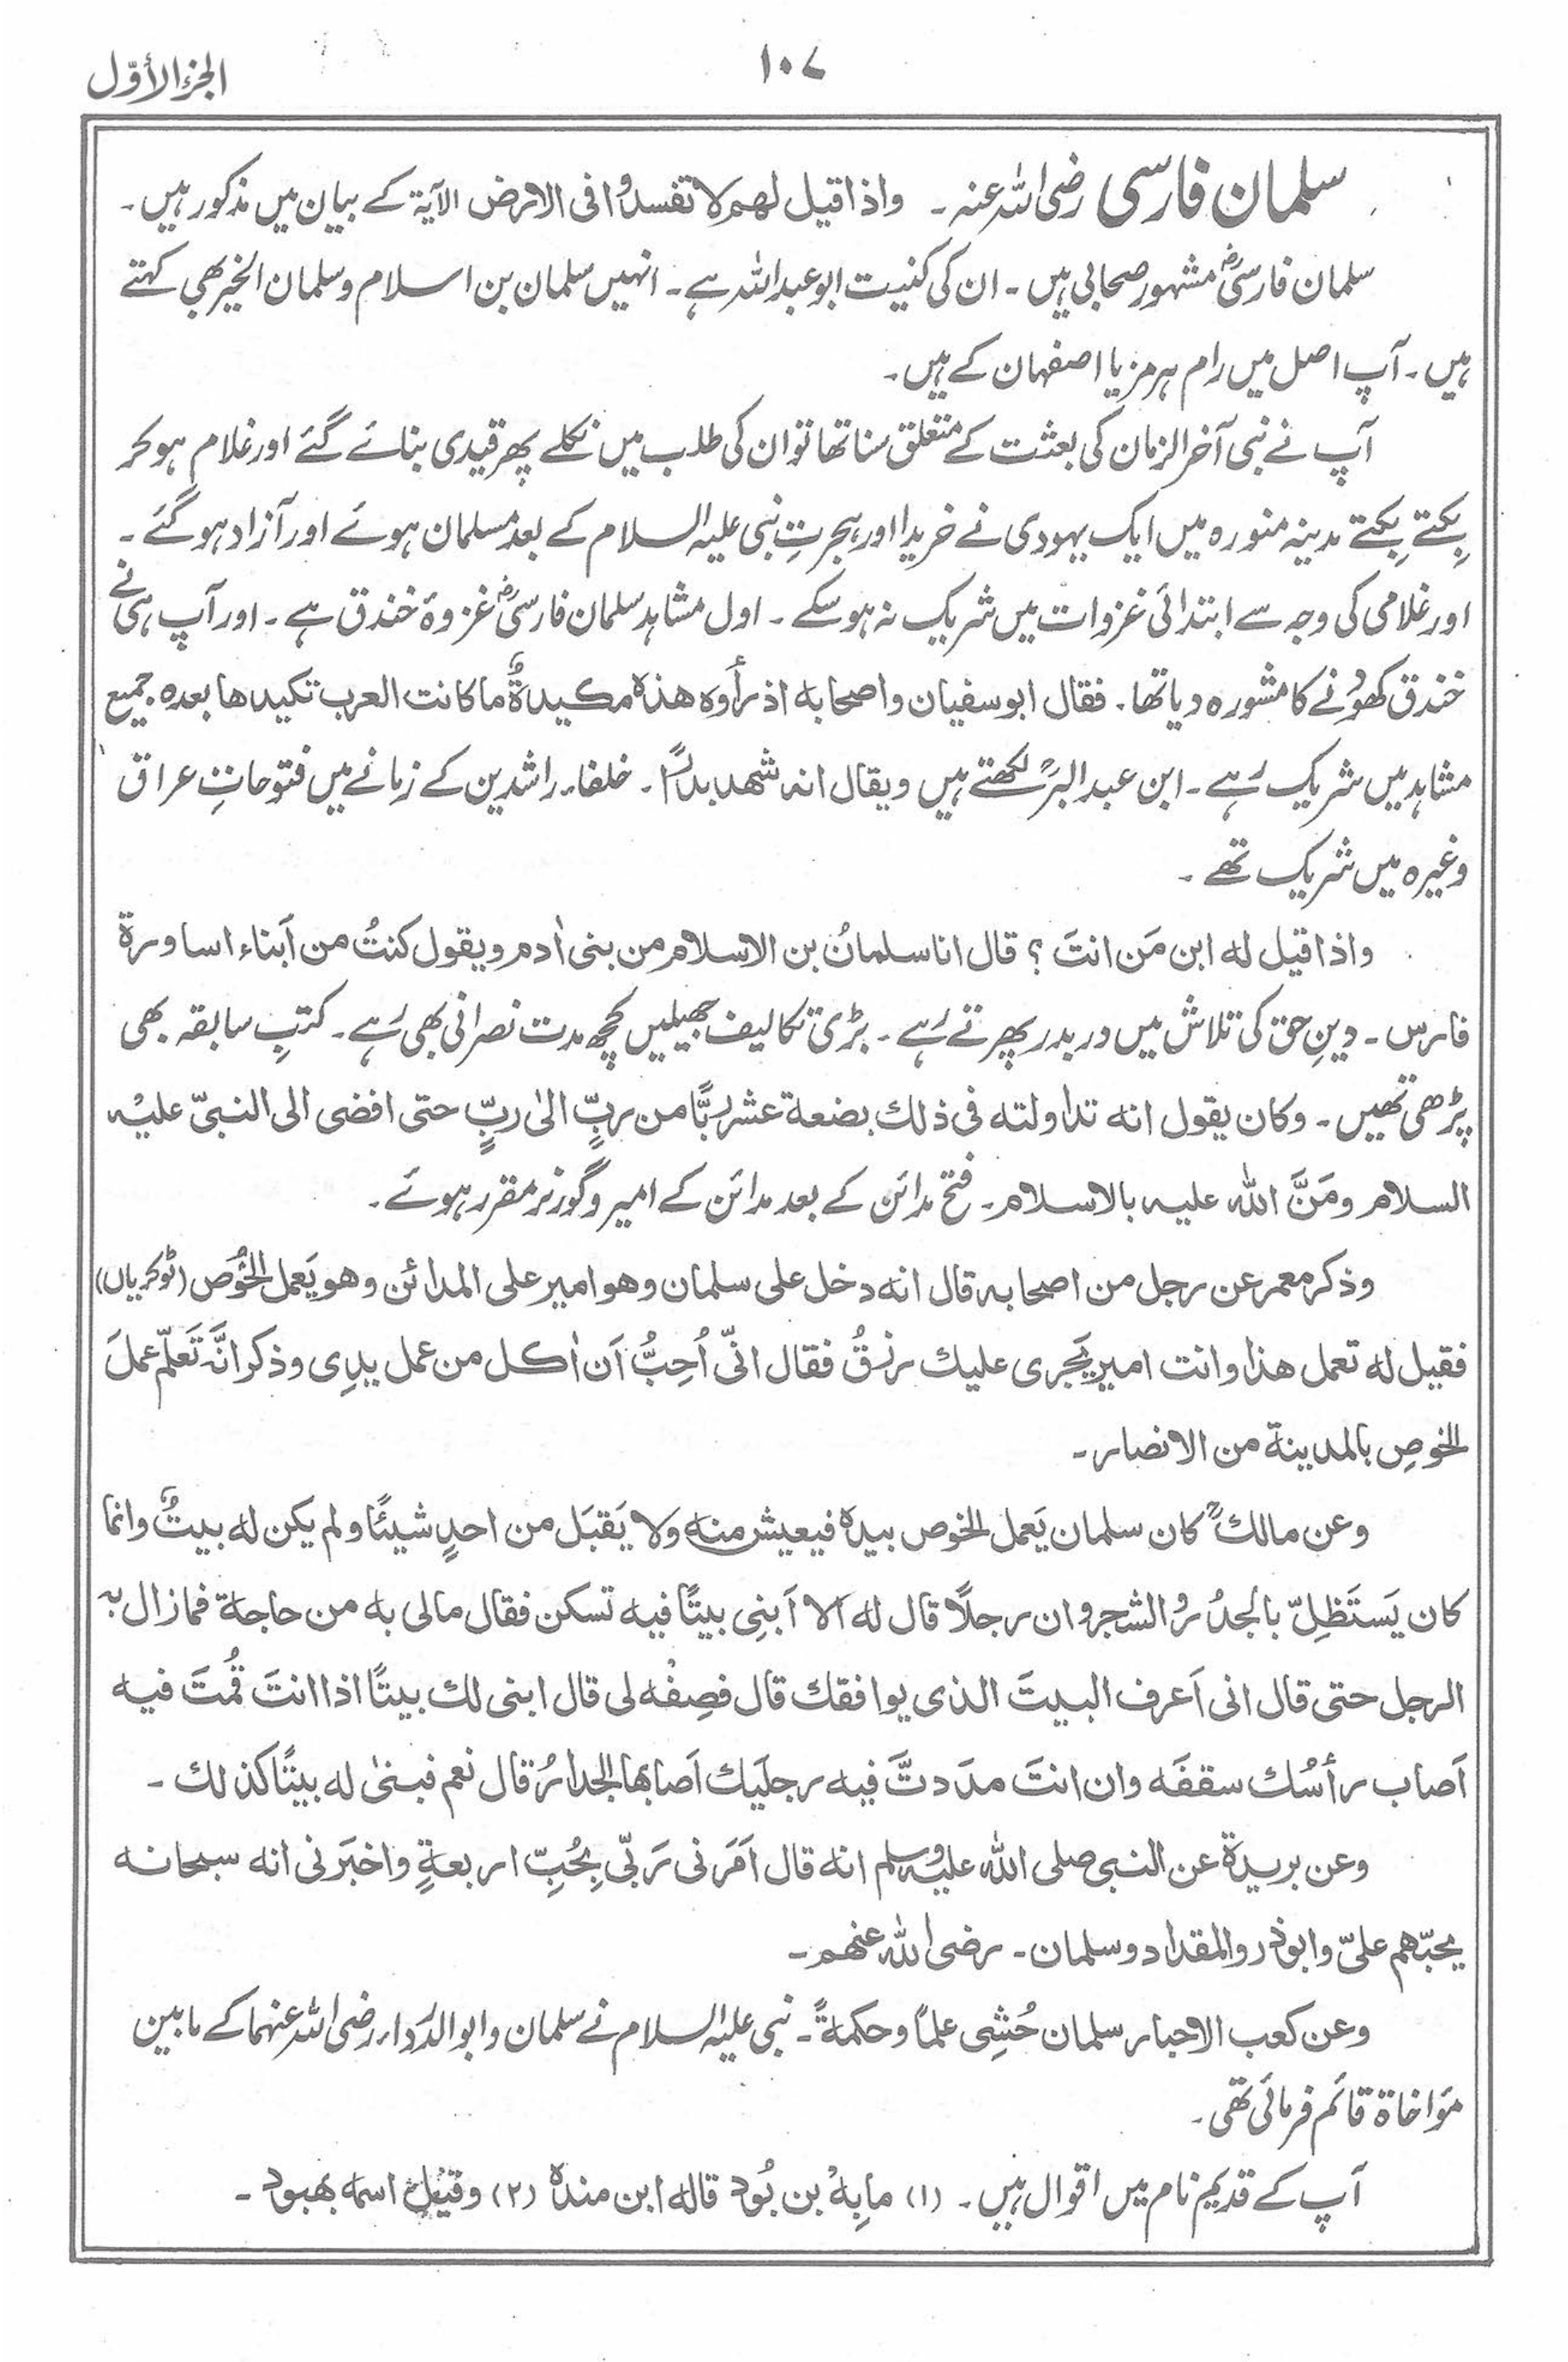 ۱۰۷
الجزء الأوّل
سلمان فارسی رضی اللہ عنہ ۔ واذا قیل لھم لا تفسدُوا فی الارض الآیۃ کے بیان میں مذکور ہیں ۔
سلمان فارسیؓ مشہور صحابی ہیں ۔ ان کی کنیت ابو عبداللہ ہے ۔ انہیں سلمان بن اسلام و سلمان الخیر بھی کہتے
ہیں ۔ آپ اصل میں رام ہرمز یا اصفہان کے ہیں ۔
آپ نے نبی آخر الزمان کی بعثت کے متعلق سنا تھا تو ان کی طلب میں نکلے پھر قیدی بنائے گئے اور غلام ہو کر
بِکتے بِکتے مدینہ منورہ میں ایک یہودی نے خریدا اور ہجرتِ نبی علیہ السلام کے بعد مسلمان ہوئے اور آزاد ہو گئے ۔
اور غلامی کی وجہ سے ابتدائی غزوات میں شریک نہ ہو سکے ۔ اول مشاہد سلمان فارسیؓ غزوۂ خندق ہے ۔ اور آپ ہی نے
خندق کھوْنے کا مشورہ دیا تھا ۔ فقال ابوسفیان و اصحابہ اذ رأوہ ھذہ مکیدۃٌ ما کانت العرب تکیدھا بعدہ جمیع
مشاہد میں شریک رَہے ۔ ابن عبد البرؒ لکھتے ہیں ویقال انہ شھد بدرًا ۔ خلفاء راشدین کے زمانے میں فتوحاتِ عراق
وغیرہ میں شریک تھے ۔
واذا قیل لہ ابن مَن انتَ ؟ قال انا سلمانُ بن الاسلام من بنی اٰدم ویقول کنتُ من اَبناء اساورۃ
فارس ۔ دینِ حق کی تلاش میں در بدر پھرتے رَہے ۔ بڑی تکالیف جھیلیں کچھ مدت نصرانی بھی رَہے ۔ کتبِ سابقہ بھی
پڑھی تھیں ۔ وکان یقول انہ تداولتہ فی ذلك بضعۃ عشر ربًّا من ربٍّ الیٰ ربٍّ حتی افضی الی النبیّ علیہ
السلام ومَنَّ اللہ علیہ بالاسلام ۔ فتح مدائن کے بعد مدائن کے امیر و گورنر مقرر ہوئے ۔
وذکر معمر عن رجل من اصحابہ قال انہ دخل علی سلمان وھو امیر علی المدائن وھو یَعمل الخُوص (ٹوکریاں)
فقیل لہ تعمل ھذا وانت امیر یَجری علیك رزقٌ فقال انّی اُحِبُّ اَن اٰکل من عمل یدِی وذکر انَّہ تَعلّم عملَ
الخوصِ بالمدینۃ من الانصار ۔
وعن مالكؒ کان سلمان یَعمل الخوص بیدہ فیعیش منہ ولا یَقبَل من احدٍ شیئًا ولم یکن لہ بیتٌ وانما
کان یَستَظِلّ بالجدُرِ والشجر وان رجلًا قال لہ اَلا اَبنِی بیتًا فیہ تسکن فقال مالی بہ من حاجۃ فما زال بہ
الرجل حتی قال انی اَعرف البیتَ الذی یوافقك قال فصِفْہ لی قال ابنی لك بیتًا اذا انتَ قُمتَ فیہ
اَصاب رأسُك سقفَہ وان انتَ مدَدتَّ فیہ رجلَیك اَصابھا الجدارُ قال نعم فبنیٰ لہ بیتًا کذلك ۔
وعن بریدۃ عن النبی صلی اللہ علیہ وسلم انہ قال اَمَرَنی رَبّی بِحُبِّ اربعۃٍ واخبَرنی انہ سبحانہ
یحبّھم علیّ وابوذر والمقداد وسلمان ۔ رضی اللہ عنھم ۔
وعن کعب الاحبار سلمان حُشِی علمًا وحکمۃً ۔ نبی علیہ السلام نے سلمان و ابوالدَرداء رضی اللہ عنہما کے مابین
مؤاخاۃ قائم فرمائی تھی ۔
آپ کے قدیم نام میں اقوال ہیں ۔ (۱) مابِہْ بن بُود قالہ ابن مندہ (۲) وقیل اسمہ بھبود ۔